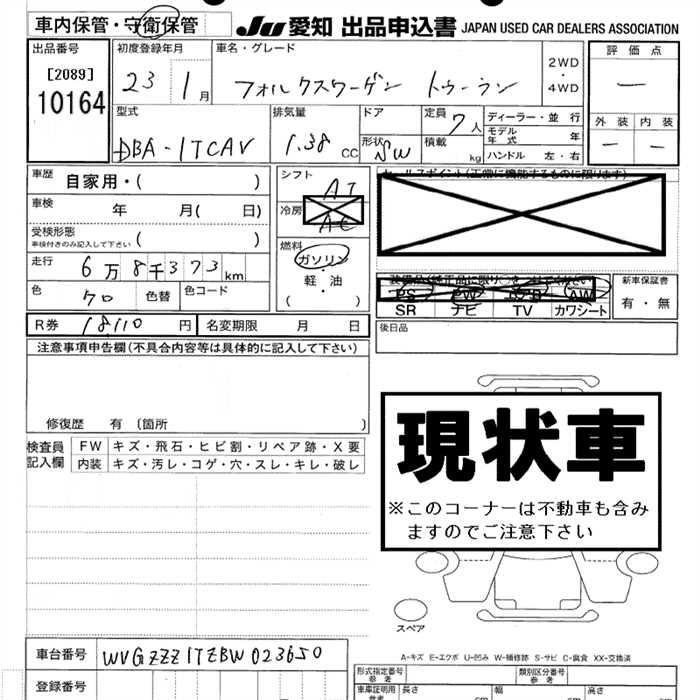 車内保管・守衛保管 JU 愛知 出品申込書 JAPAN USED CAR DEALERS ASSOCIATION
出品番号 初度登録年月 車名・グレード 2WD・4WD 評価点
[2089] 23 1月 フォルクスワーゲン トゥーラン —
10164 型式 排気量 ドア 定員 7人 ディーラー・並行 外装 内装
DBA-1TCAV 1.38 CC 形状 SW 積載 kg モデル年式 年 — —
ハンドル 左・右
車歴 自家用・( ) シフト AT セールスポイント(正常に機能するものに限ります)
車検 年 月( 日) 冷房 AC
受検形態 車検付きのみ記入して下さい ( ) 燃料
走行 6万8千373km ガソリン・軽・油 ( ) 装備品(純正品に限り〇をつけてください) 新車保証書
色 クロ 色替 色コード PS PW AW 有・無
SR ナビ TV カワシート
R券 18,110円 名変期限 月 日 後日品
注意事項申告欄(不具合内容等は具体的に記入して下さい)
現状車
※このコーナーは不動車も含み
ますのでご注意下さい
修復歴 有 〔箇所 〕
検査員記入欄 FW キズ・飛石・ヒビ割・リペア跡・X要
内装 キズ・汚レ・コゲ・穴・スレ・キレ・破レ
スペア
A-キズ E-エクボ U-凹み W-補修跡 S-サビ C-腐食 XX-交換済
車台番号 WVGZZZ1TZBW023650 形式指定番号 参考 類別区分番号
登録番号 車庫証明用 参考 長さ cm 幅 cm 高さ cm